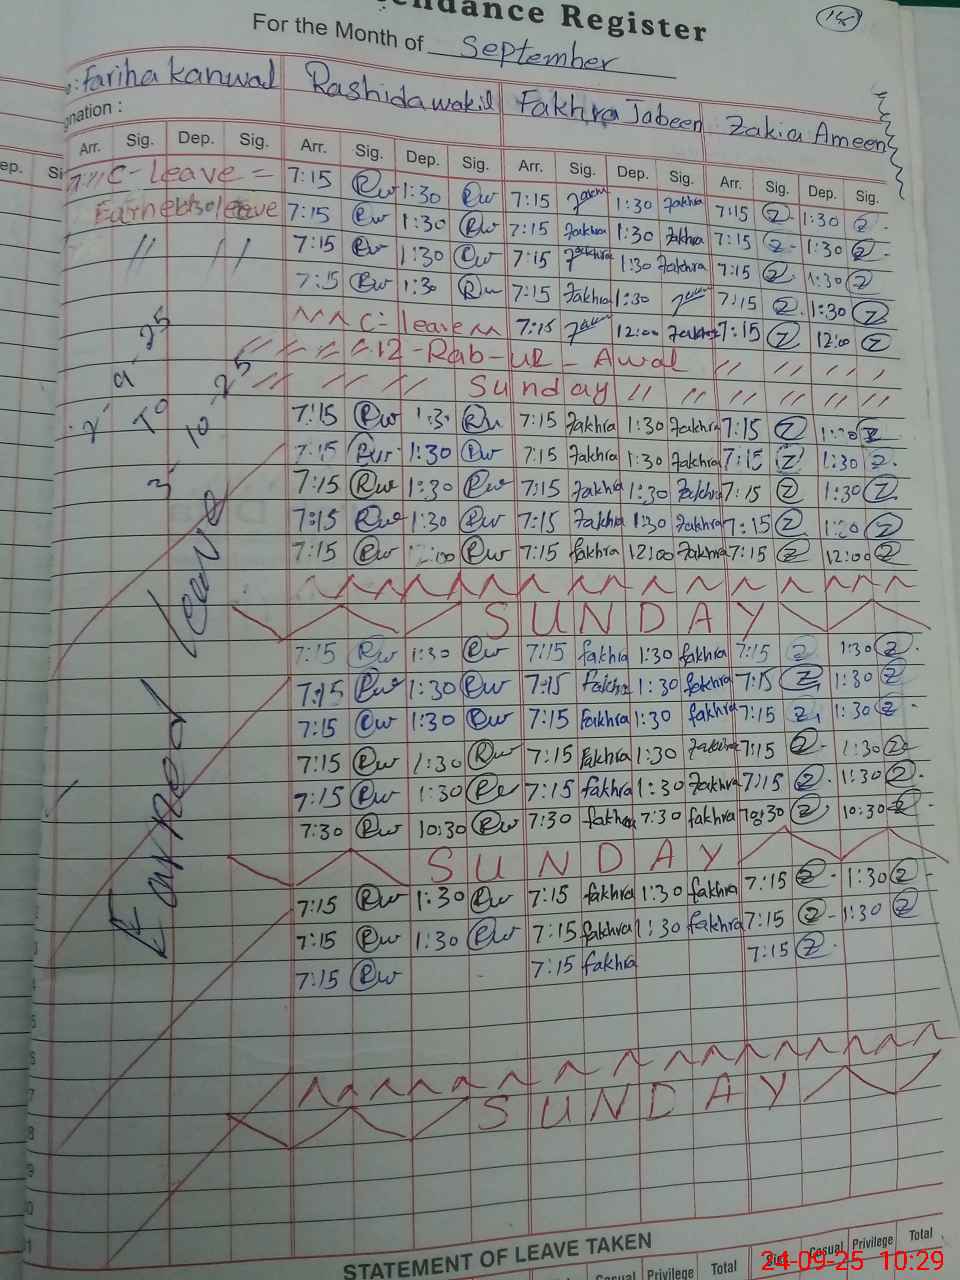 Attendance Register
For the Month of September
Fariha Kanwal Rashida wakil Fakhra Jabeen Zakia Ameen
Arr. Sig. Dep. Sig. Arr. Sig. Dep. Sig. Arr. Sig. Dep. Sig. Arr. Sig. Dep. Sig.
C- Leave = 7:15 Rw 1:30 Rw 7:15 1:30 Fakhra 7:15 Z 1:30 Z
leave 7:15 Rw 1:30 Rw 7:15 Fakhra 1:30 Fakhra 7:15 Z 1:30 Z
// // 7:15 Rw 1:30 Rw 7:15 Fakhra 1:30 Fakhra 7:15 Z 1:30 Z
7:15 Rw 1:30 Rw 7:15 Fakhra 1:30 7:15 Z 1:30 Z
C- leave 7:15 12:00 Fakhra 7:15 Z 12:00 Z
12-Rab-ul-Awal // // // //
// // // // Sunday // // // // // //
7:15 Rw 1:30 Rw 7:15 Fakhra 1:30 Fakhra 7:15 Z Z
7:15 Rw 1:30 Rw 7:15 Fakhra 1:30 Fakhra 7:15 Z 1:30 Z
7:15 Rw 1:30 Rw 7:15 Fakhra 1:30 Fakhra 7:15 Z 1:30 Z
7:15 Rw 1:30 Rw 7:15 Fakhra 1:30 Fakhra 7:15 Z 1:30 Z
7:15 Rw 12:00 Rw 7:15 fakhra 12:00 Fakhra 7:15 Z 12:00 Z
SUNDAY
7:15 Rw 1:30 Rw 7:15 fakhra 1:30 fakhra 7:15 Z 1:30 Z
7:15 Rw 1:30 Rw 7:15 Fakhra 1:30 fakhra 7:15 Z 1:30 Z
7:15 Rw 1:30 Rw 7:15 Fakhra 1:30 fakhra 7:15 Z 1:30 Z
7:15 Rw 1:30 Rw 7:15 Fakhra 1:30 Fakhra 7:15 Z 1:30 Z
7:15 Rw 1:30 Rw 7:15 fakhra 1:30 Fakhra 7:15 Z 1:30 Z
7:30 Rw 10:30 Rw 7:30 fakhra 7:30 fakhra Z 10:30 Z
SUNDAY
7:15 Rw 1:30 Rw 7:15 fakhra 1:30 fakhra 7:15 Z 1:30 Z
7:15 Rw 1:30 Rw 7:15 fakhra 1:30 fakhra 7:15 Z 1:30 Z
7:15 Rw 7:15 fakhra 7:15 Z
SUNDAY
Earned leave
STATEMENT OF LEAVE TAKEN
Casual Privilege Total Sig. Casual Privilege Total
24-09-25 10:29